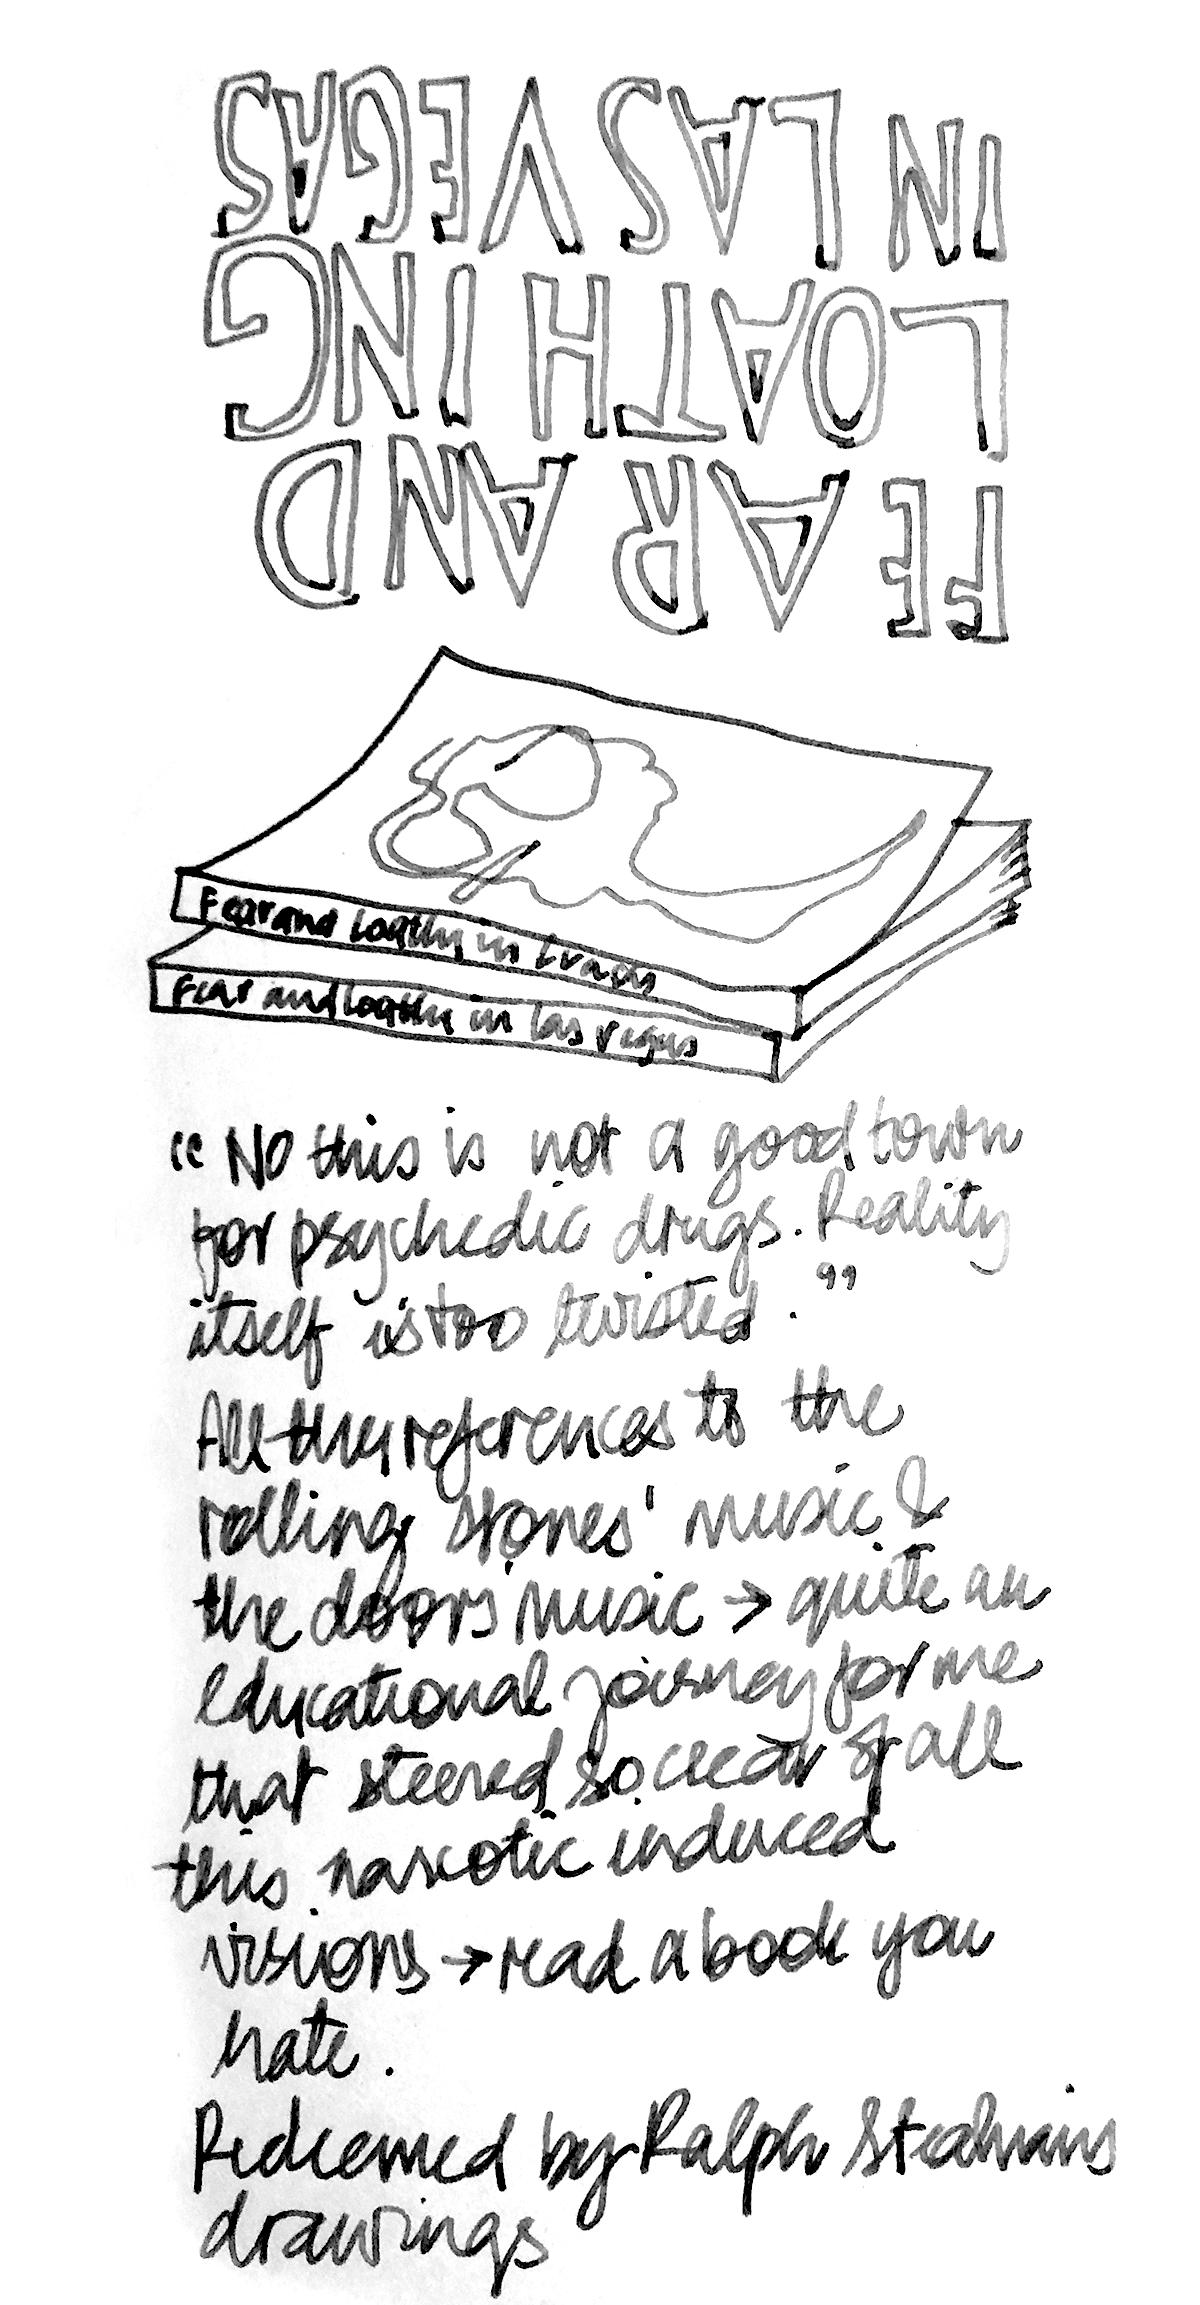 FEAR AND
LOATHING
IN LAS VEGAS
Fear and loathing in
Fear and loathing in las vegas
“No this is not a good town
for psychedic drugs. Reality
itself is too twisted.”
All the references to the
rolling stones' music &
the doors' music → quite an
educational journey for me
that steered so clear of all
this narcotic induced
visions → read a book you
hate.
Redeemed by Ralph Steadmans
drawings